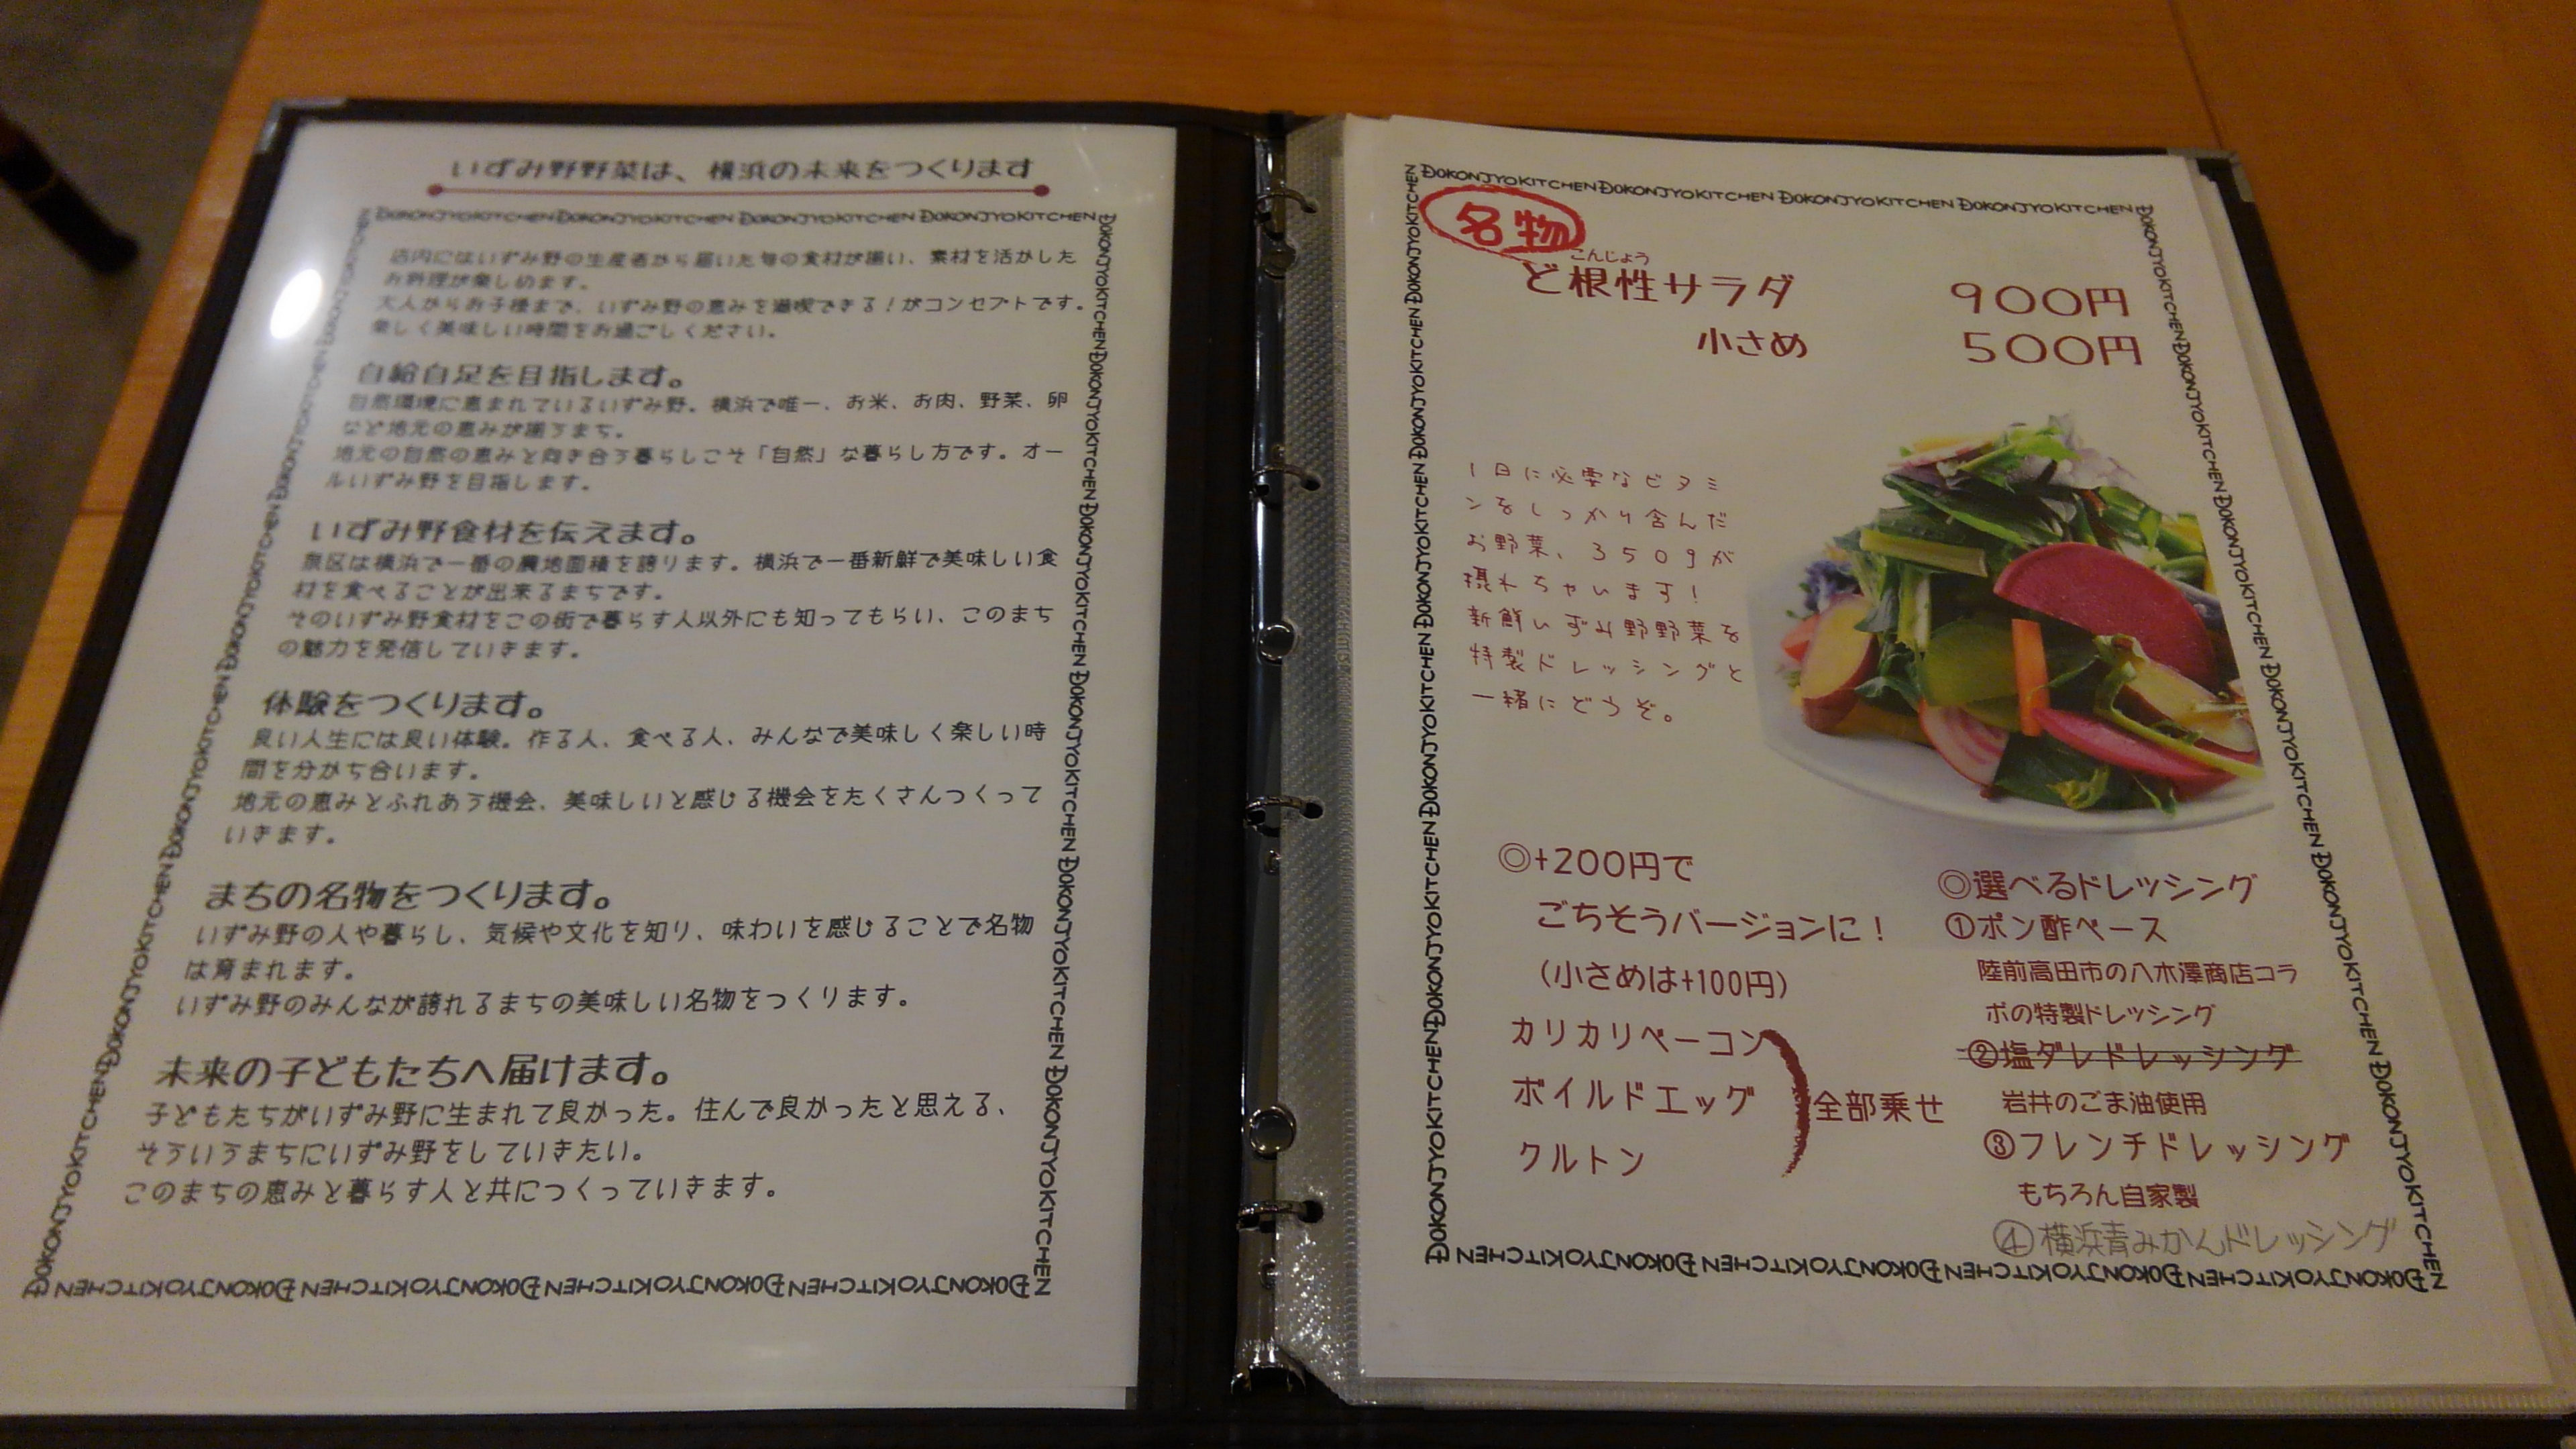 いずみ野野菜は、横浜の未来をつくります
DOKONJYOKITCHEN DOKONJYOKITCHEN DOKONJYOKITCHEN DOKONJYOKITCHEN
店内にはいずみ野の生産者から届いた旬の食材が揃い、素材を活かした
お料理が楽しめます。
大人からお子様まで、いずみ野の恵みを満喫できる!がコンセプトです。
楽しく美味しい時間をお過ごしください。
自給自足を目指します。
自然環境に恵まれているいずみ野。横浜で唯一、お米、お肉、野菜、卵
など地元の恵みが揃うまち。
地元の自然の恵みと向き合う暮らしこそ「自然」な暮らし方です。オー
ルいずみ野を目指します。
いずみ野食材を伝えます。
泉区は横浜で一番の農地面積を誇ります。横浜で一番新鮮で美味しい食
材を食べることが出来るまちです。
そのいずみ野食材をこの街で暮らす人以外にも知ってもらい、このまち
の魅力を発信していきます。
体験をつくります。
良い人生には良い体験。作る人、食べる人、みんなで美味しく楽しい時
間を分かち合います。
地元の恵みとふれあう機会、美味しいと感じる機会をたくさんつくって
いきます。
まちの名物をつくります。
いずみ野の人や暮らし、気候や文化を知り、味わいを感じることで名物
は育まれます。
いずみ野のみんなが誇れるまちの美味しい名物をつくります。
未来の子どもたちへ届けます。
子どもたちがいずみ野に生まれて良かった。住んで良かったと思える、
そういうまちにいずみ野をしていきたい。
このまちの恵みと暮らす人と共につくっていきます。
DOKONJYOKITCHEN DOKONJYOKITCHEN DOKONJYOKITCHEN DOKONJYOKITCHEN
DOKONJYOKITCHEN DOKONJYOKITCHEN DOKONJYOKITCHEN DOKONJYOKITCHEN
名物
こんじょう
ど根性サラダ 900円
小さめ 500円
1日に必要なビタミ
ンをしっかり含んだ
お野菜、350gが
摂れちゃいます!
新鮮いずみ野野菜を
特製ドレッシングと
一緒にどうぞ。
◎+200円で
ごちそうバージョンに!
(小さめは+100円)
カリカリベーコン
ボイルドエッグ
クルトン
全部乗せ
◎選べるドレッシング
①ポン酢ベース
陸前高田市の八木澤商店コラ
ボの特製ドレッシング
②塩ダレドレッシング
岩井のごま油使用
③フレンチドレッシング
もちろん自家製
④横浜青みかんドレッシング
DOKONJYOKITCHEN DOKONJYOKITCHEN DOKONJYOKITCHEN DOKONJYOKITCHEN